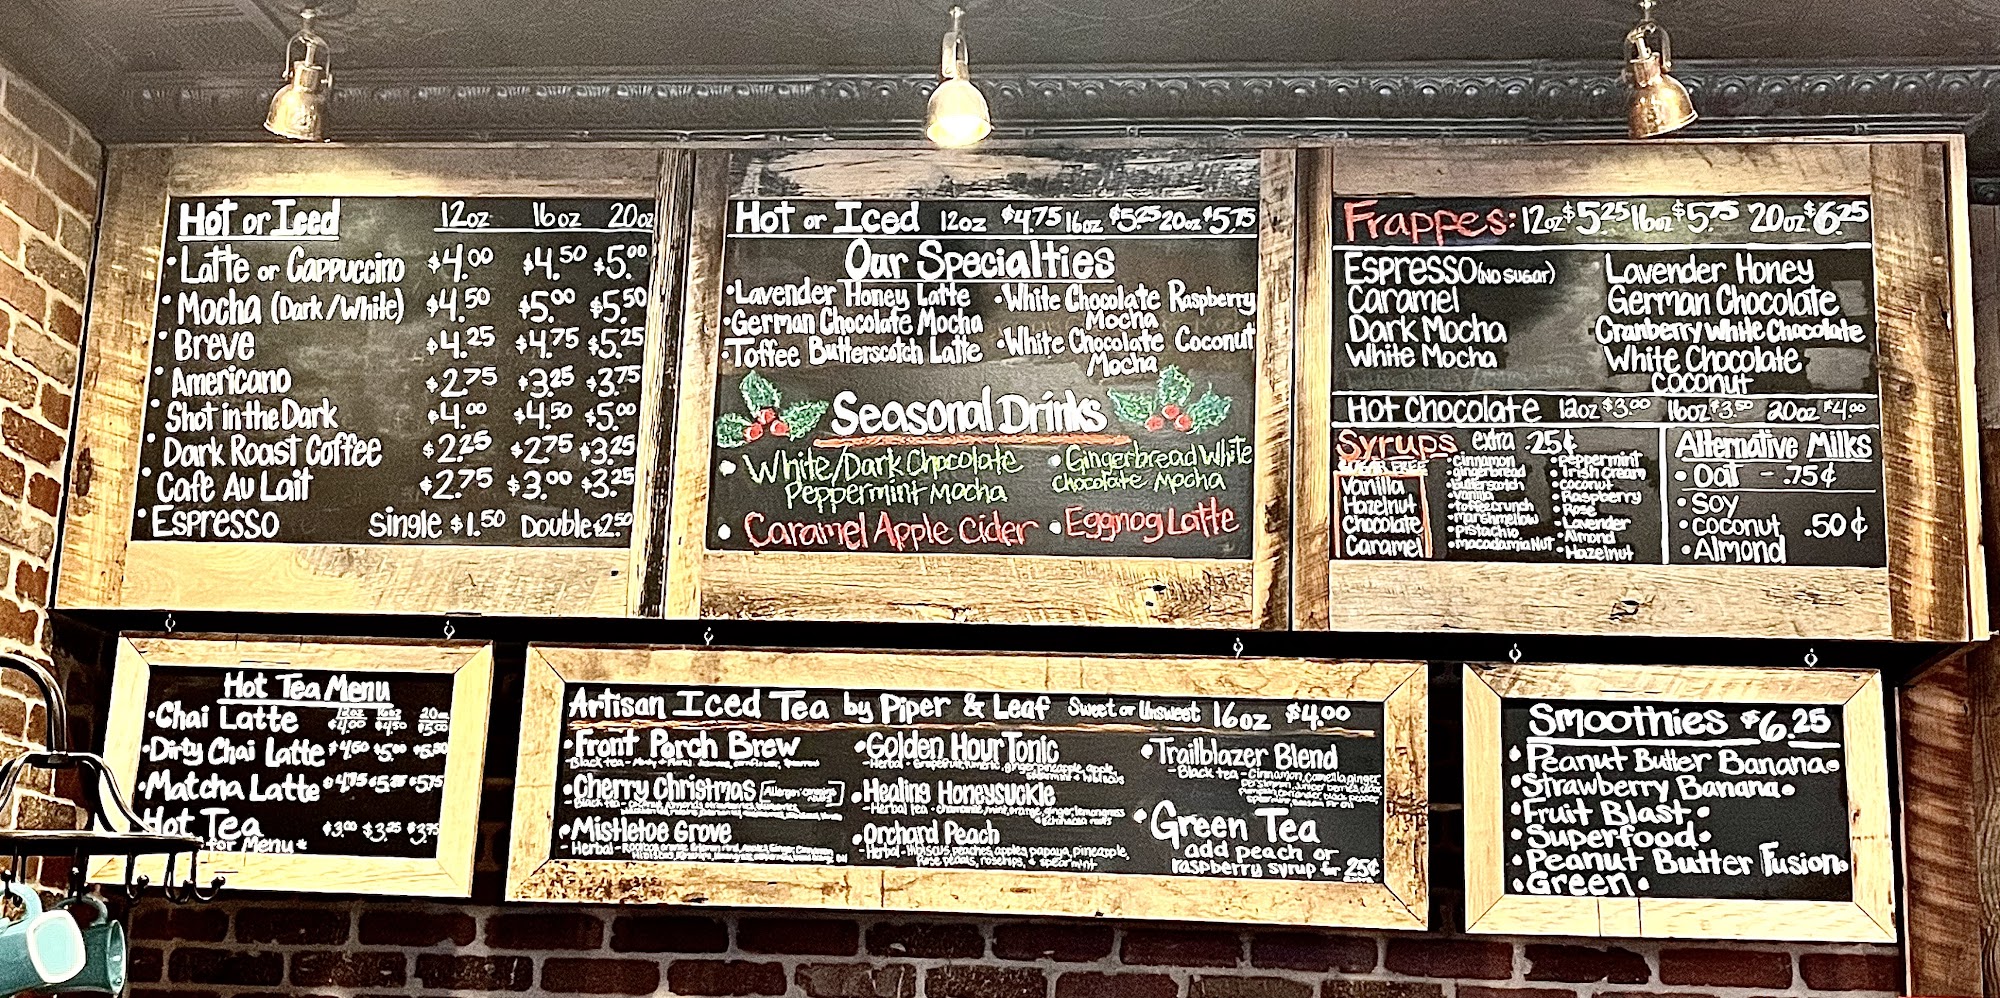 Hot or Iced 12oz 16oz 20oz
• Latte or Cappuccino $4.00 $4.50 $5.00
• Mocha (Dark/White) $4.50 $5.00 $5.50
• Breve $4.25 $4.75 $5.25
• Americano $2.75 $3.25 $3.75
• Shot in the Dark $4.00 $4.50 $5.00
• Dark Roast Coffee $2.25 $2.75 $3.25
• Café Au Lait $2.75 $3.00 $3.25
• Espresso Single $1.50 Double $2.50
Hot or Iced 12oz $4.75 16oz $5.25 20oz $5.75
Our Specialties
• Lavender Honey Latte
• German Chocolate Mocha
• Toffee Butterscotch Latte
• White Chocolate Raspberry
Mocha
• White Chocolate Coconut
Mocha
Seasonal Drinks
• White/Dark Chocolate
Peppermint Mocha
• Gingerbread White
Chocolate Mocha
• Caramel Apple Cider
• Eggnog Latte
Frappes: 12oz $5.25 16oz $5.75 20oz $6.25
Espresso (No Sugar)
Caramel
Dark Mocha
White Mocha
Lavender Honey
German Chocolate
Cranberry White Chocolate
White Chocolate
Coconut
Hot Chocolate 12oz $3.00 16oz $3.50 20oz $4.00
Syrups extra 25¢
Sugar Free
Vanilla
Hazelnut
Chocolate
Caramel
• Cinnamon
• gingerbread
• Butterscotch
• Vanilla
• Toffee crunch
• Marshmellow
• Pistachio
• Macadamia Nut
• Peppermint
• Irish Cream
• Coconut
• Raspberry
• Rose
• Lavender
• Almond
• Hazelnut
Alternative Milks
• Oat - .75¢
• Soy
• Coconut .50¢
• Almond
Hot Tea Menu
12oz 16oz 20oz
• Chai Latte $4.00 $4.50 $5.00
• Dirty Chai Latte $4.50 $5.00 $5.50
• Matcha Latte $4.75 $5.25 $5.75
Hot Tea $3.00 $3.25 $3.75
for Menu*
Artisan Iced Tea by Piper & Leaf Sweet or Unsweet 16oz $4.00
• Front Porch Brew
Black tea -
• Cherry Christmas
Black tea -
• Mistletoe Grove
- Herbal -
• Golden Hour Tonic
- Herbal - Grapefruit, turmeric, ginger, pineapple, apple,
& hibiscus
• Healing Honeysuckle
- Herbal tea - chamomile, orange, ginger, lemongrass
• Orchard Peach
- Herbal - hibiscus, peaches, apples, papaya, pineapple,
Rose petals, rosehips, & spearmint
• Trailblazer Blend
- Black tea - Cinnamon, ginger,
• Green Tea
add peach or
raspberry syrup for 25¢
Smoothies $6.25
• Peanut Butter Banana •
• Strawberry Banana •
• Fruit Blast •
• Superfood •
• Peanut Butter Fusion •
• Green •